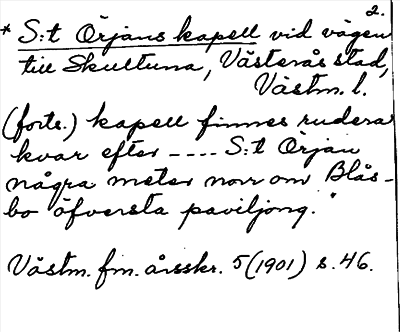 2.
* S:t Örjans kapell vid vägen
till Skultuna, Västerås stad,
Västm. l.
(forts.) kapell finnes rudera
kvar efter ---- S:t Örjan
några meter norr om Blås-
bo öfversta paviljong."
Västm. fm. årsskr. 5 (1901) s. 46.